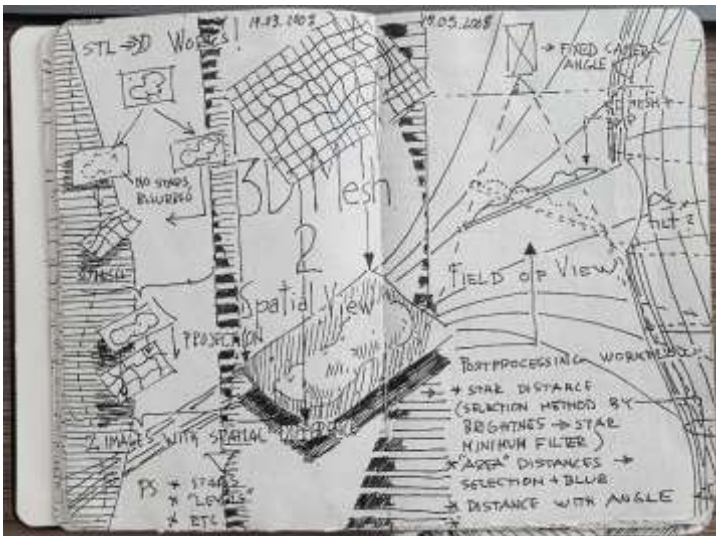 STL → 3D WORKS!
19.03.2008
NO STARS,
BLURRED
3D Mesh
2
Spatial View
PROJECTION
2 IMAGES WITH SPATIAL DIFFERENCE
PS * STARS
* "LEVELS"
* ETC
19.03.2008
→ FIXED CAMERA
ANGLE
MESH +
TILT 2
FIELD OF VIEW
POSTPROCESSING WORKFLOW
→ * STAR DISTANCE
(SELECTION METHOD BY
BRIGHTNES → STAR
MINIMUM FILTER)
* "AREA" DISTANCES →
SELECTION + BLUR
* DISTANCE WITH ANGLE
*